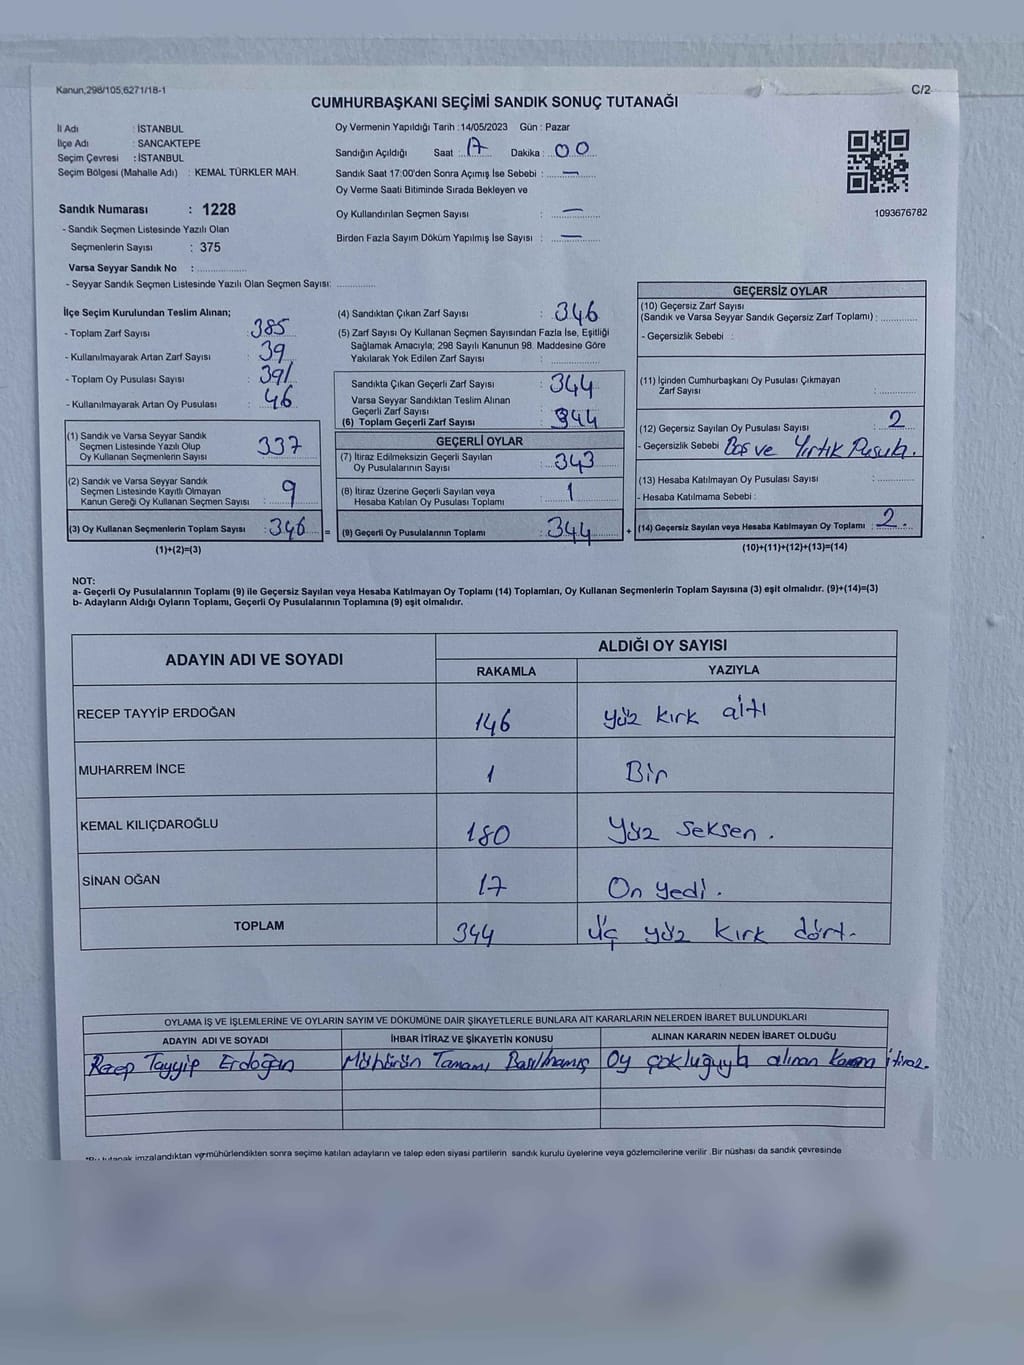 Kanun;298/105;6271/18-1
C/2
CUMHURBAŞKANI SEÇİMİ SANDIK SONUÇ TUTANAĞI
İl Adı : İSTANBUL
İlçe Adı : SANCAKTEPE
Seçim Çevresi : İSTANBUL
Seçim Bölgesi (Mahalle Adı) : KEMAL TÜRKLER MAH.
Sandık Numarası : 1228
- Sandık Seçmen Listesinde Yazılı Olan
Seçmenlerin Sayısı : 375
Varsa Seyyar Sandık No : ..................
- Seyyar Sandık Seçmen Listesinde Yazılı Olan Seçmen Sayısı: ..............
Oy Vermenin Yapıldığı Tarih :14/05/2023 Gün : Pazar
Sandığın Açıldığı Saat : 17 Dakika : 00
Sandık Saat 17:00'den Sonra Açımış İse Sebebi : —
Oy Verme Saati Bitiminde Sırada Bekleyen ve
Oy Kullandırılan Seçmen Sayısı : —
Birden Fazla Sayım Döküm Yapılmış İse Sayısı : —
1093676782
İlçe Seçim Kurulundan Teslim Alınan;
- Toplam Zarf Sayısı : 385
- Kullanılmayarak Artan Zarf Sayısı : 39
- Toplam Oy Pusulası Sayısı : 391
- Kullanılmayarak Artan Oy Pusulası : 46
(1) Sandık ve Varsa Seyyar Sandık
Seçmen Listesinde Yazılı Olup
Oy Kullanan Seçmenlerin Sayısı : 337
(2) Sandık ve Varsa Seyyar Sandık
Seçmen Listesinde Kayıtlı Olmayan
Kanun Gereği Oy Kullanan Seçmen Sayısı : 9
(3) Oy Kullanan Seçmenlerin Toplam Sayısı : 346 =
(1)+(2)=(3)
(4) Sandıktan Çıkan Zarf Sayısı : 346
(5) Zarf Sayısı Oy Kullanan Seçmen Sayısından Fazla İse, Eşitliği
Sağlamak Amacıyla; 298 Sayılı Kanunun 98. Maddesine Göre
Yakılarak Yok Edilen Zarf Sayısı : ..............
Sandıkta Çıkan Geçerli Zarf Sayısı : 344
Varsa Seyyar Sandıktan Teslim Alınan
Geçerli Zarf Sayısı :
(6) Toplam Geçerli Zarf Sayısı : 344
GEÇERLİ OYLAR
(7) İtiraz Edilmeksizin Geçerli Sayılan
Oy Pusulalarının Sayısı : 343
(8) İtiraz Üzerine Geçerli Sayılan veya
Hesaba Katılan Oy Pusulası Toplamı : 1
(9) Geçerli Oy Pusulalarının Toplamı : 344 +
GEÇERSİZ OYLAR
(10) Geçersiz Zarf Sayısı
(Sandık ve Varsa Seyyar Sandık Geçersiz Zarf Toplamı) : .............
- Geçersizlik Sebebi :
(11) İçinden Cumhurbaşkanı Oy Pusulası Çıkmayan
Zarf Sayısı : .............
(12) Geçersiz Sayılan Oy Pusulası Sayısı : 2
- Geçersizlik Sebebi Boş ve Yırtık Pusula.
(13) Hesaba Katılmayan Oy Pusulası Sayısı : .............
- Hesaba Katılmama Sebebi :
(14) Geçersiz Sayılan veya Hesaba Katılmayan Oy Toplamı : 2.
(10)+(11)+(12)+(13)=(14)
NOT:
a- Geçerli Oy Pusulalarının Toplamı (9) ile Geçersiz Sayılan veya Hesaba Katılmayan Oy Toplamı (14) Toplamları, Oy Kullanan Seçmenlerin Toplam Sayısına (3) eşit olmalıdır. (9)+(14)=(3)
b- Adayların Aldığı Oyların Toplamı, Geçerli Oy Pusulalarının Toplamına (9) eşit olmalıdır.
ADAYIN ADI VE SOYADI
ALDIĞI OY SAYISI
RAKAMLA YAZIYLA
RECEP TAYYİP ERDOĞAN 146 yüz kırk altı
MUHARREM İNCE 1 Bir
KEMAL KILIÇDAROĞLU 180 Yüz seksen.
SİNAN OĞAN 17 On yedi.
TOPLAM 344 üç yüz kırk dört.
OYLAMA İŞ VE İŞLEMLERİNE VE OYLARIN SAYIM VE DÖKÜMÜNE DAİR ŞİKAYETLERLE BUNLARA AİT KARARLARIN NELERDEN İBARET BULUNDUKLARI
ADAYIN ADI VE SOYADI İHBAR İTİRAZ VE ŞİKAYETİN KONUSU ALINAN KARARIN NEDEN İBARET OLDUĞU
Recep Tayyip Erdoğan Mühürün Tamamı Basılmamış Oy çokluğuyla alınan karara itiraz.
*Bu tutanak imzalandıktan ve mühürlendikten sonra seçime katılan adayların ve talep eden siyasi partilerin sandık kurulu üyelerine veya gözlemcilerine verilir .Bir nüshası da sandık çevresinde